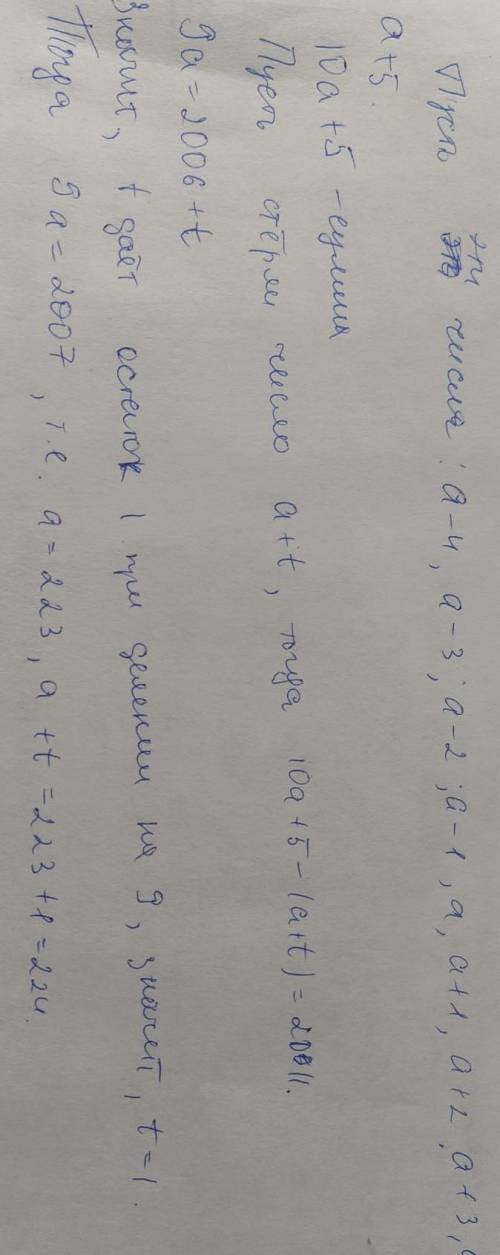 Пусть эти числа: a-4, a-3; a-2; a-1, a, a+1, a+2, a+3,
a+5.
10a+5 - сумма
Пусть стёрли число a+t, тогда 10a+5-(a+t)=2011.
9a=2006+t
Значит, t даёт остаток 1 при делении на 9, значит, t=1.
Тогда 9a=2007, т.е. a=223, a+t=223+1=224.